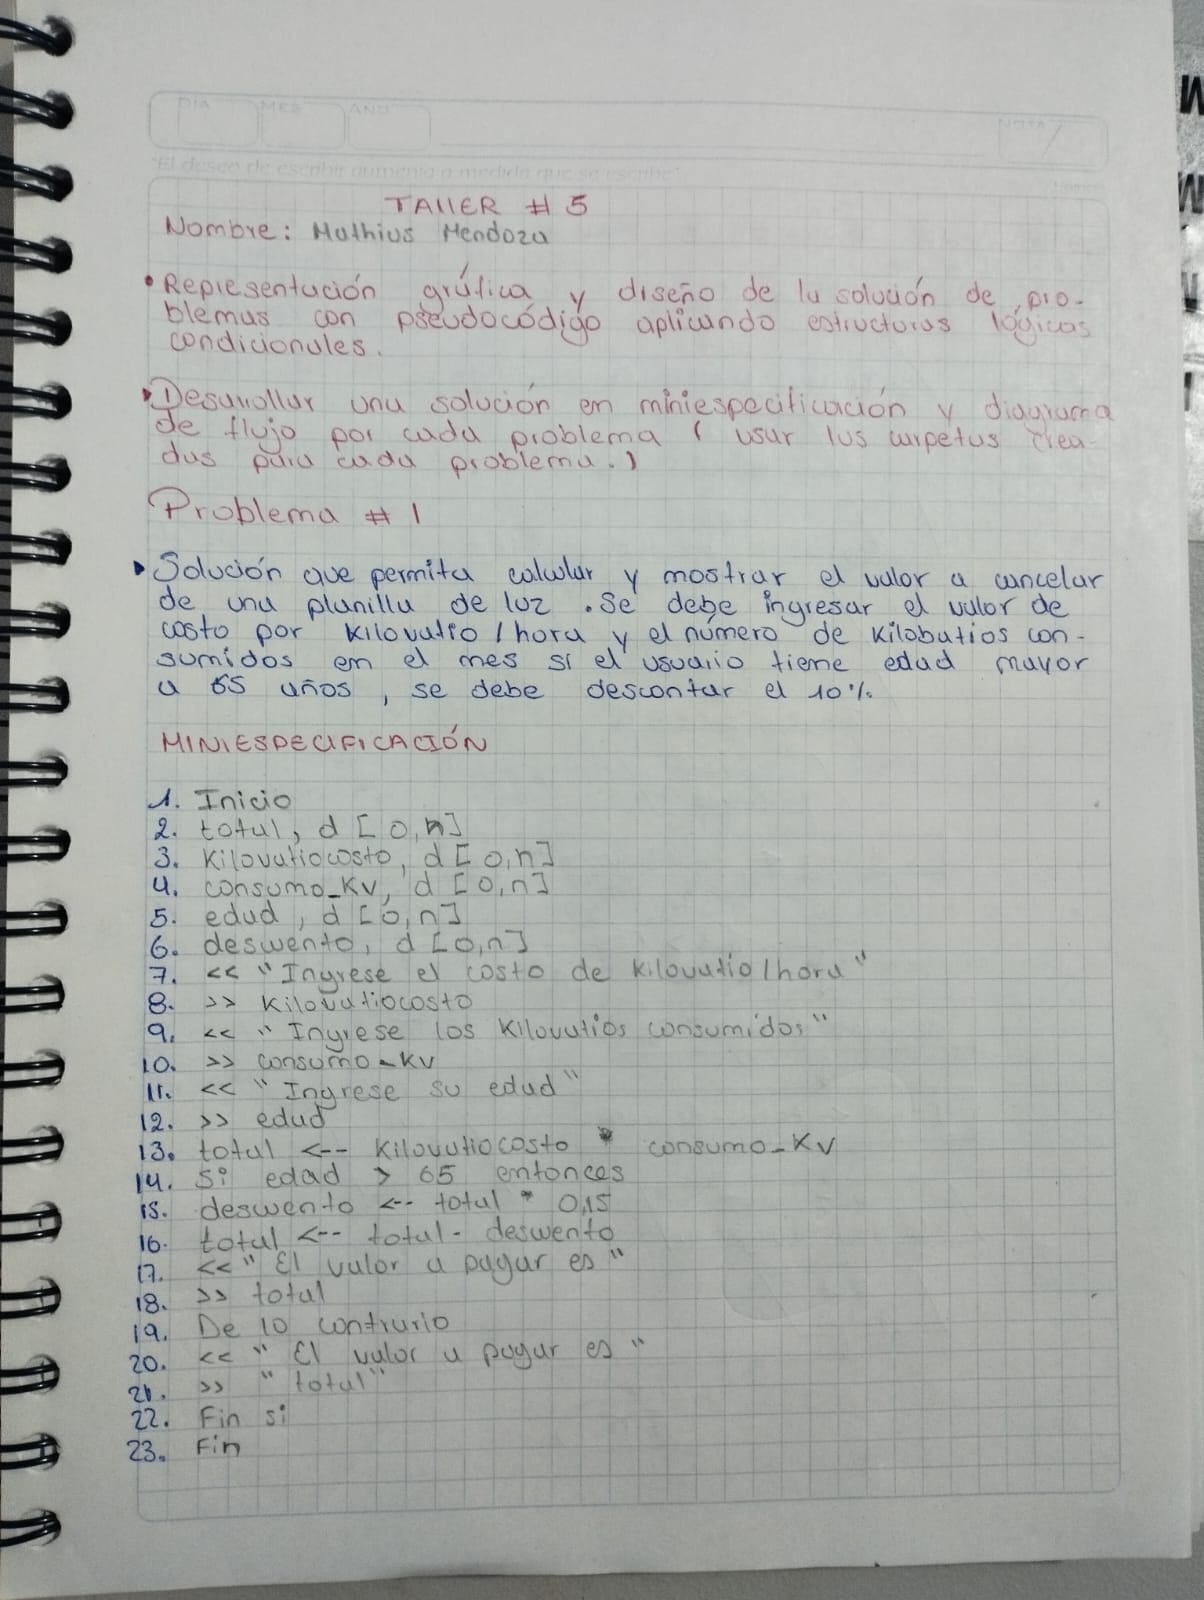 DIA MES AÑO NOTA
"El deseo de escribir aumenta a medida que se escribe"
TAllER # 5
Nombre: Mathius Mendoza
• Representación gráfica y diseño de la solución de pro-
blemas con pseudocódigo aplicando estructuras lógicas
condicionales.
• Desarrollar una solución en miniespecificación y diagrama
de flujo por cada problema ( usar las carpetas crea-
das para cada problema.)
Problema # 1
• Solución que permita calcular y mostrar el valor a cancelar
de una planilla de luz . Se debe ingresar el valor de
costo por kilovatio / hora y el número de kilobatios con-
sumidos en el mes si el usuario tiene edad mayor
a 65 años , se debe descontar el 10%
MINIESPECIFICACIÓN
1. Inicio
2. total, d [0,n]
3. Kilovatiocosto, d [0,n]
4. consumo_KV, d [0,n]
5. edad, d [0,n]
6. descuento, d [0,n]
7. << "Ingrese el costo de kilovatio/hora"
8. >> Kilovatiocosto
9. << "Ingrese los Kilovatios consumidos"
10. >> consumo_KV
11. << "Ingrese su edad"
12. >> edad
13. total <-- Kilovatiocosto * consumo_KV
14. Si edad > 65 entonces
15. descuento <-- total * 0,15
16. total <-- total - descuento
17. << "El valor a pagar es"
18. >> total
19. De lo contrario
20. << "El valor a pagar es"
21. >> "total"
22. Fin si
23. Fin